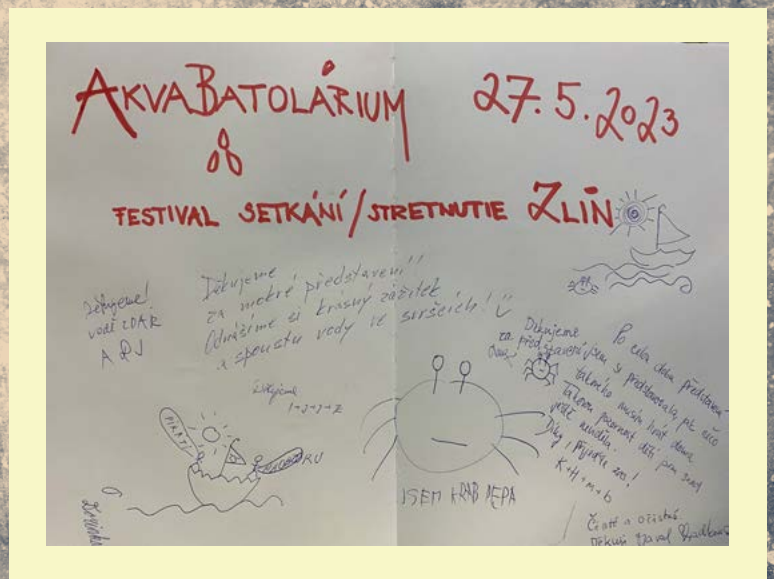 AKVABATOLÁRIUM 27.5.2023
FESTIVAL SETKÁNÍ/STRETNUTIE ZLÍN
Děkujeme!
vodě ZDAR
A RJ
Děkujeme
za mokré představení!!
Odnášíme si krásný zážitek
a spoustu vody ve svršcích!
Děkujeme
PIRÁTI
JSEM KRAB PEPA
Děkujeme
za představení
Po celou dobu představení
jsem si představovala, jak něco
takového musím hrát doma.
Takovou pozornost dětí jsem snad
ještě neviděla.
Díky, přijeďte zas!
K+H+M+B
Čisté a očistné.
Děkuji